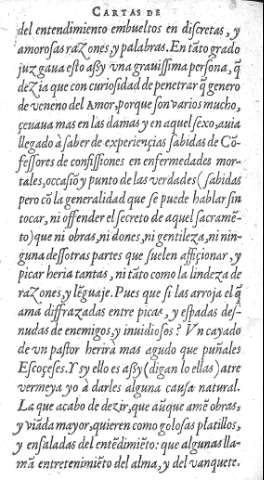 CARTAS DE
del entendimiento embueltos en discretas, y
amorosas razones, y palabras. En tãto grado
juzgaua esto assy vna grauissima persona, q̃
dezia que con curiosidad de penetrar q̃ genero
de veneno del Amor, porque son varios mucho,
ceuaua mas en las damas y en aquel sexo, auia
llegado à saber de experiençias sabidas de Cõ-
fessores de confissiones en enfermedades mor-
tales, occasiõ y punto de las verdades (sabidas
pero cõ la generalidad que se puede hablar sin
tocar, ni offender el secreto de aquel sacramẽ-
to) que ni obras, ni dones, ni gentileza, ni nin-
guna dessotras partes que suelen afficionar, y
picar heria tantas, ni tãto como la lindeza de
razones, y lẽguaje. Pues que si las arroja el q̃
ama diffrazadas entre picas, y espadas des-
nudas de enemigos, y inuidiosos? Vn cayado
de vn pastor herirà mas agudo que puñales
Escoçeses. Y sy ello es assy (digan lo ellas) atre
vermeya yo à darles alguna causa natural.
La que acabo de dezir, que aũque amẽ obras,
y viãda mayor, quieren como golosas platillos,
y ensaladas del entẽdimiẽto: que algunas lla-
mã entretenimiẽto del alma, y del vanquete.